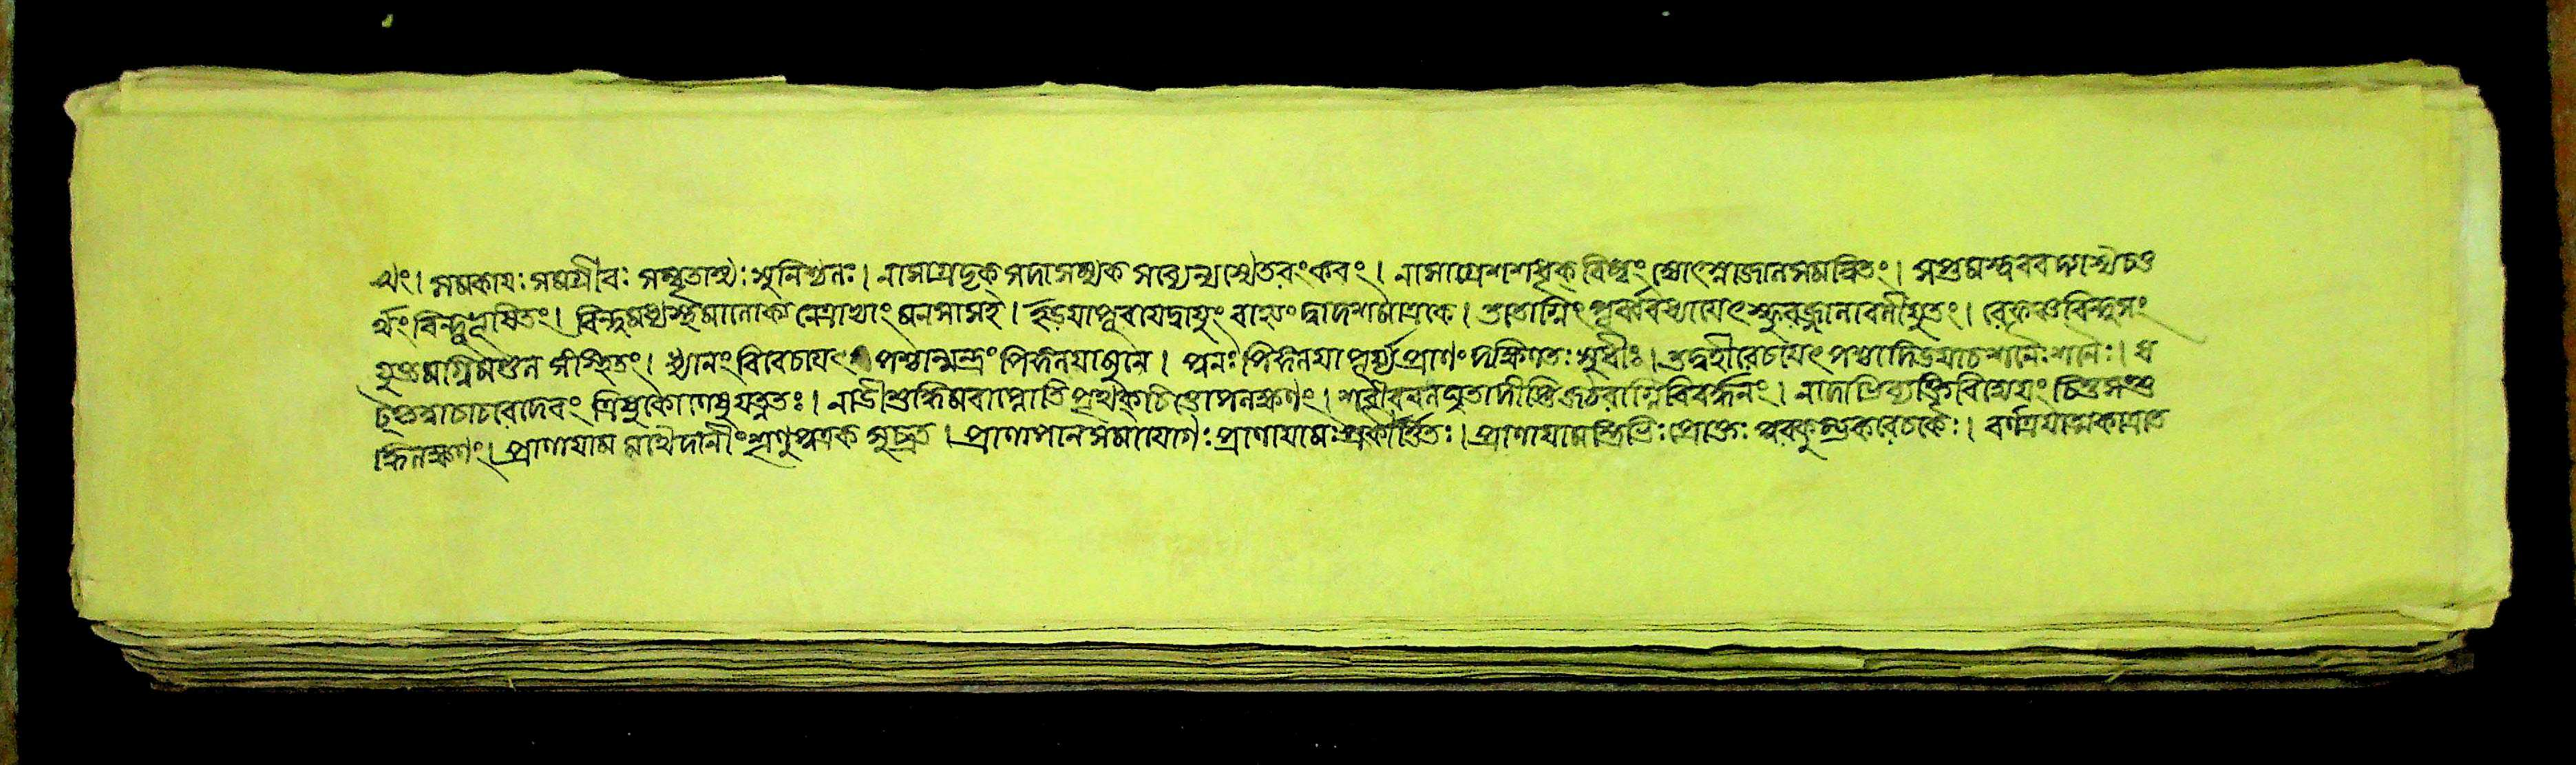 থং। সমকায়ঃ সমগ্রীবঃ সম্বৃতাস্যঃ সুনিশ্চলঃ। নাসাগ্রদৃক্ সদাসম্যক সব্যেন্যস্যেতরংকরং। নাসাগ্রেশশভৃক্ বিম্বং জ্যোৎস্নাজালসমন্বিতং। সপ্তমস্যতুবর্গস্য চতু
র্থং বিন্দুভূষিতং। বিন্দুমধ্যস্থমালোক্য নেত্রাভ্যাং মনসাসহ। ইড়য়াপূরয়েদ্বায়ুং বাহ্যং দ্বাদশমাত্রকৈ। ততোগ্নিং পূর্ব্ববদ্ধ্যায়েৎ স্ফুরজ্জ্বালাবলীয়ুতং। রেফঞ্চবিন্দুসং
যুক্তমগ্নিমণ্ডল সংস্থিতং। ধ্যানং বিরেচয়েৎ পশ্চান্মন্দ্রং পিঙ্গলয়াপুনে। পুনঃ পিঙ্গলয়াপূর্য্য প্রাণং দক্ষিণতঃ সুধীঃ। তদ্বদ্বীরেচয়েৎ পশ্চাদিড়য়াচ শনৈঃ শনৈঃ। ত্রি
চতুরব্দং চাচরেদেবং ত্রিষুকালেষুযত্নতঃ। নাড়ীশুদ্ধিমবাপ্নোতি পৃথক্ চিহ্নোপলক্ষণং। শরীরলঘুতাদীপ্তির্জঠরাগ্নিবিবর্দ্ধনং। নাদাভিব্যক্তিরিত্যেয়ং চিত্তসংশু
দ্ধিলক্ষণং। প্রাণায়াম মথেদানীং শৃণুপুত্রক সুব্রত। প্রাণাপান সমাযোগঃ প্রাণায়ামঃ প্রকীর্ত্তিতঃ। প্রাণায়ামস্ত্রিভিঃ প্রোক্তঃ পূরককুম্ভকরেচকৈঃ। বর্ণত্রয়াত্মকাপ্রাত